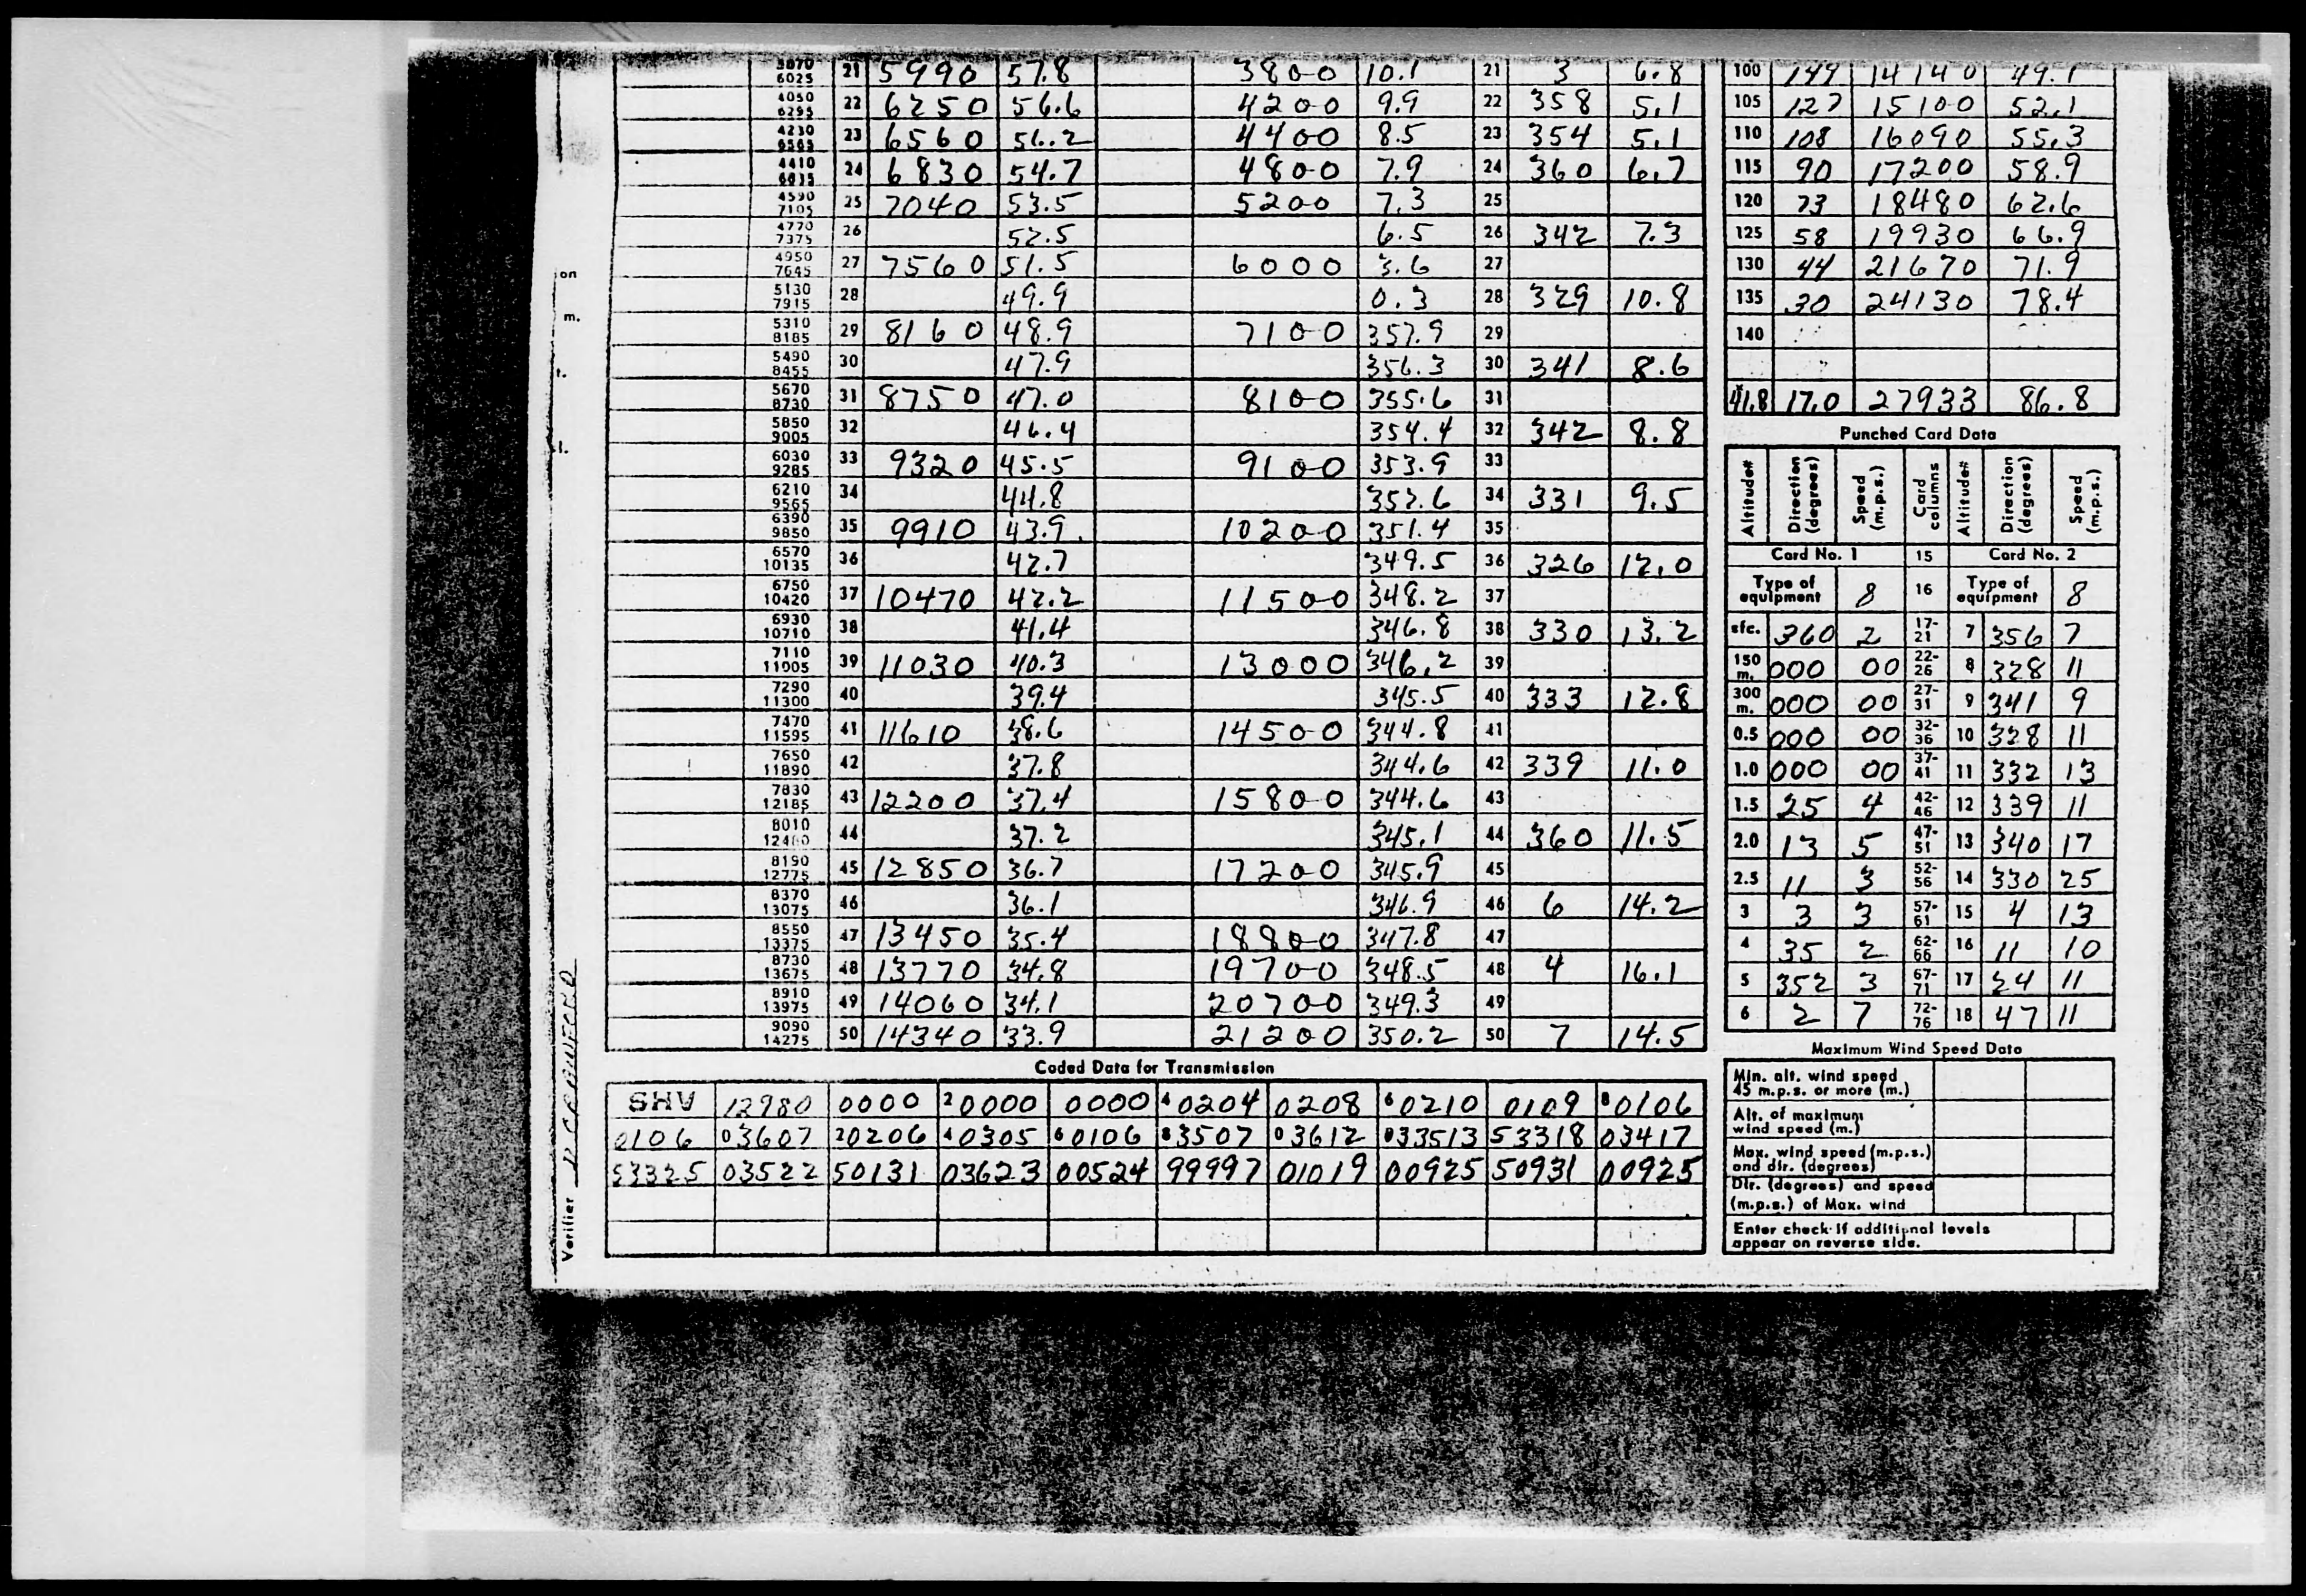 3870 6025 21 5990 57.8 3800 10.1 21 3 6.8
4050 6295 22 6250 56.6 4200 9.9 22 358 5.1
4230 6565 23 6560 56.2 4400 8.5 23 354 5.1
4410 6835 24 6830 54.7 4800 7.9 24 360 6.7
4590 7105 25 7040 53.5 5200 7.3 25
4770 7375 26 52.5 6.5 26 342 7.3
4950 7645 27 7560 51.5 6000 3.6 27
5130 7915 28 49.9 0.3 28 329 10.8
5310 8185 29 8160 48.9 7100 357.9 29
5490 8455 30 47.9 356.3 30 341 8.6
5670 8730 31 8750 47.0 8100 355.6 31
5850 9005 32 46.4 354.4 32 342 8.8
6030 9285 33 9320 45.5 9100 353.9 33
6210 9565 34 44.8 352.6 34 331 9.5
6390 9850 35 9910 43.9 10200 351.4 35
6570 10135 36 42.7 349.5 36 326 12.0
6750 10420 37 10470 42.2 11500 348.2 37
6930 10710 38 41.4 346.8 38 330 13.2
7110 11005 39 11030 40.3 13000 346.2 39
7290 11300 40 39.4 345.5 40 333 12.8
7470 11595 41 11610 38.6 14500 344.8 41
7650 11890 42 37.8 344.6 42 339 11.0
7830 12185 43 12200 37.4 15800 344.6 43
8010 12480 44 37.2 345.1 44 360 11.5
8190 12775 45 12850 36.7 17200 345.9 45
8370 13075 46 36.1 346.9 46 6 14.2
8550 13375 47 13450 35.4 18800 347.8 47
8730 13675 48 13770 34.8 19700 348.5 48 4 16.1
8910 13975 49 14060 34.1 20700 349.3 49
9090 14275 50 14340 33.9 21200 350.2 50 7 14.5
Coded Data for Transmission
SHV 12980 0000 20000 0000 40204 0208 60210 0109 80106
0106 03607 20206 40305 60106 83507 03612 833513 53318 03417
53325 03522 50131 03623 00524 99997 01019 00925 50931 00925
on
m.
t.
l.
Verifier D CRAWFORD
100 149 14140 49.1
105 127 15100 52.1
110 108 16090 55.3
115 90 17200 58.9
120 73 18480 62.6
125 58 19930 66.9
130 44 21670 71.9
135 30 24130 78.4
140
41.8 17.0 27933 86.8
Punched Card Data
Altitude# Direction (degrees) Speed (m.p.s.) Card columns Altitude# Direction (degrees) Speed (m.p.s.)
Card No. 1 15 Card No. 2
Type of equipment 8 16 Type of equipment 8
sfc. 360 2 17-21 7 356 7
150 m. 000 00 22-26 8 328 11
300 m. 000 00 27-31 9 341 9
0.5 000 00 32-36 10 328 11
1.0 000 00 37-41 11 332 13
1.5 25 4 42-46 12 339 11
2.0 13 5 47-51 13 340 17
2.5 11 3 52-56 14 330 25
3 3 3 57-61 15 4 13
4 35 2 62-66 16 11 10
5 352 3 67-71 17 24 11
6 2 7 72-76 18 47 11
Maximum Wind Speed Data
Min. alt. wind speed 45 m.p.s. or more (m.)
Alt. of maximum wind speed (m.)
Max. wind speed (m.p.s.) and dir. (degrees)
Dir. (degrees) and speed (m.p.s.) of Max. wind
Enter check if additional levels appear on reverse side.